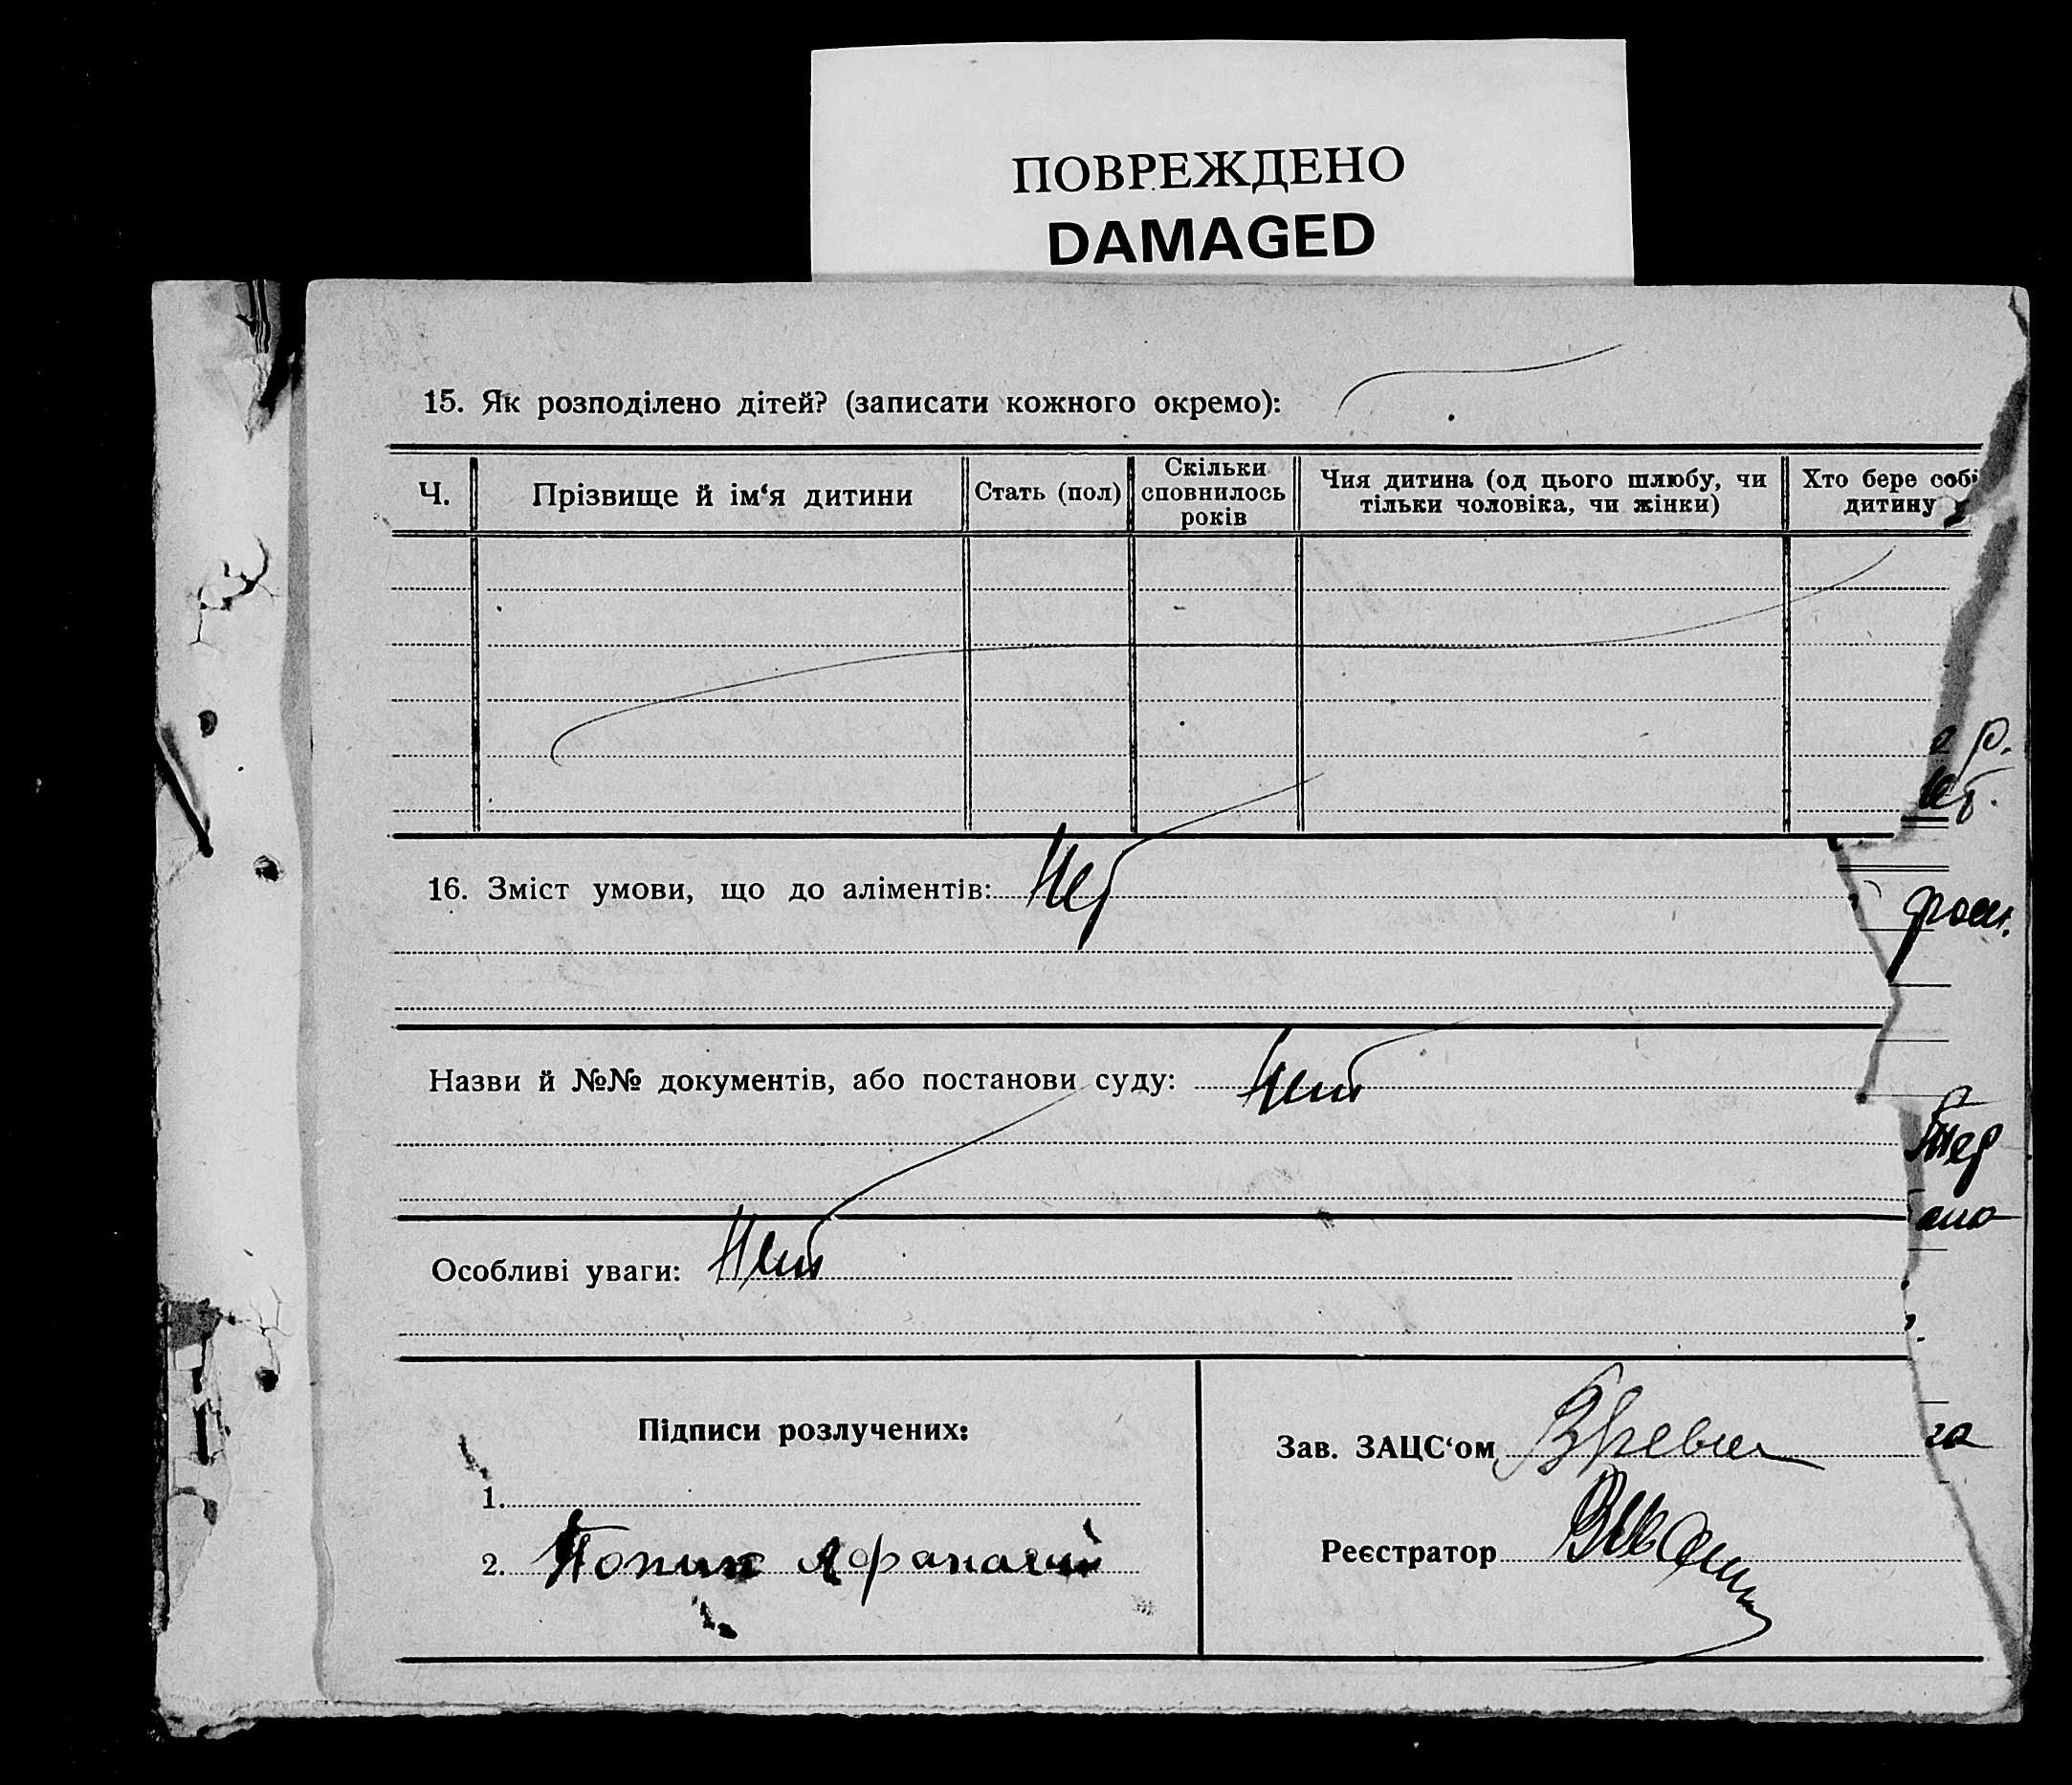 ПОВРЕЖДЕНО
DAMAGED
15. Як розподілено дітей? (записати кожного окремо):
Ч. Прізвище й ім‘я дитини Стать (пол) Скільки сповнилось років Чия дитина (од цього шлюбу, чи тільки чоловіка, чи жінки) Хто бере собі дитину
16. Зміст умови, що до аліментів: Нет
Назви й №№ документів, або постанови суду: Нет
Особливі уваги: Нет
Підписи розлучених:
Зав. ЗАЦС‘ом
1.
Реєстратор
2. Попик Афанасий